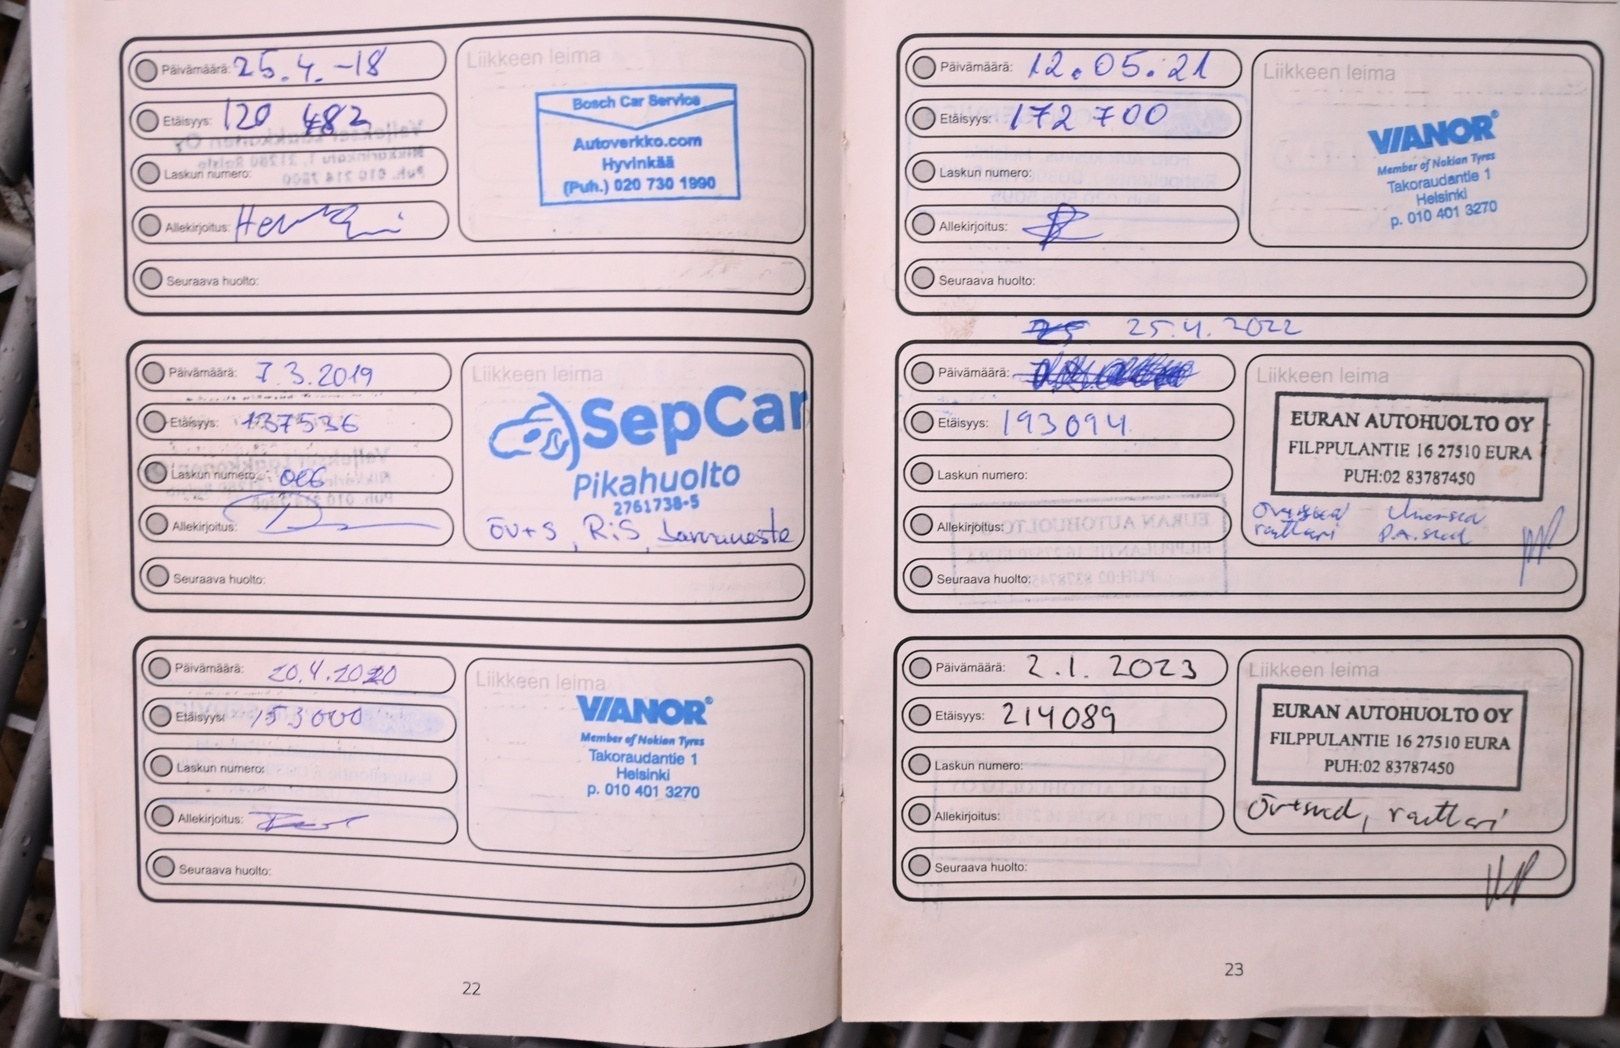 Päivämäärä: 25.4.-18
Etäisyys: 120 482
Laskun numero:
Allekirjoitus:
Seuraava huolto:
Liikkeen leima
Bosch Car Service
Autoverkko.com
Hyvinkää
(Puh.) 020 730 1990
Päivämäärä: 7.3.2019
Etäisyys: 137536
Laskun numero: 006
Allekirjoitus:
Seuraava huolto:
Liikkeen leima
SepCar
Pikahuolto
2761738-5
öv+s, RiS, Jarruneste
Päivämäärä: 20.4.2020
Etäisyys: 153000
Laskun numero:
Allekirjoitus:
Seuraava huolto:
Liikkeen leima
VIANOR®
Member of Nokian Tyres
Takoraudantie 1
Helsinki
p. 010 401 3270
22
Päivämäärä: 12.05.21
Etäisyys: 172 700
Laskun numero:
Allekirjoitus:
Seuraava huolto:
Liikkeen leima
VIANOR®
Member of Nokian Tyres
Takoraudantie 1
Helsinki
p. 010 401 3270
25.4.2022
Päivämäärä:
Etäisyys: 193094
Laskun numero:
Allekirjoitus:
Seuraava huolto:
Liikkeen leima
EURAN AUTOHUOLTO OY
FILPPULANTIE 16 27510 EURA
PUH:02 83787450
raittari
Päivämäärä: 2.1.2023
Etäisyys: 214089
Laskun numero:
Allekirjoitus:
Seuraava huolto:
Liikkeen leima
EURAN AUTOHUOLTO OY
FILPPULANTIE 16 27510 EURA
PUH:02 83787450
öv+sud, raittari
23